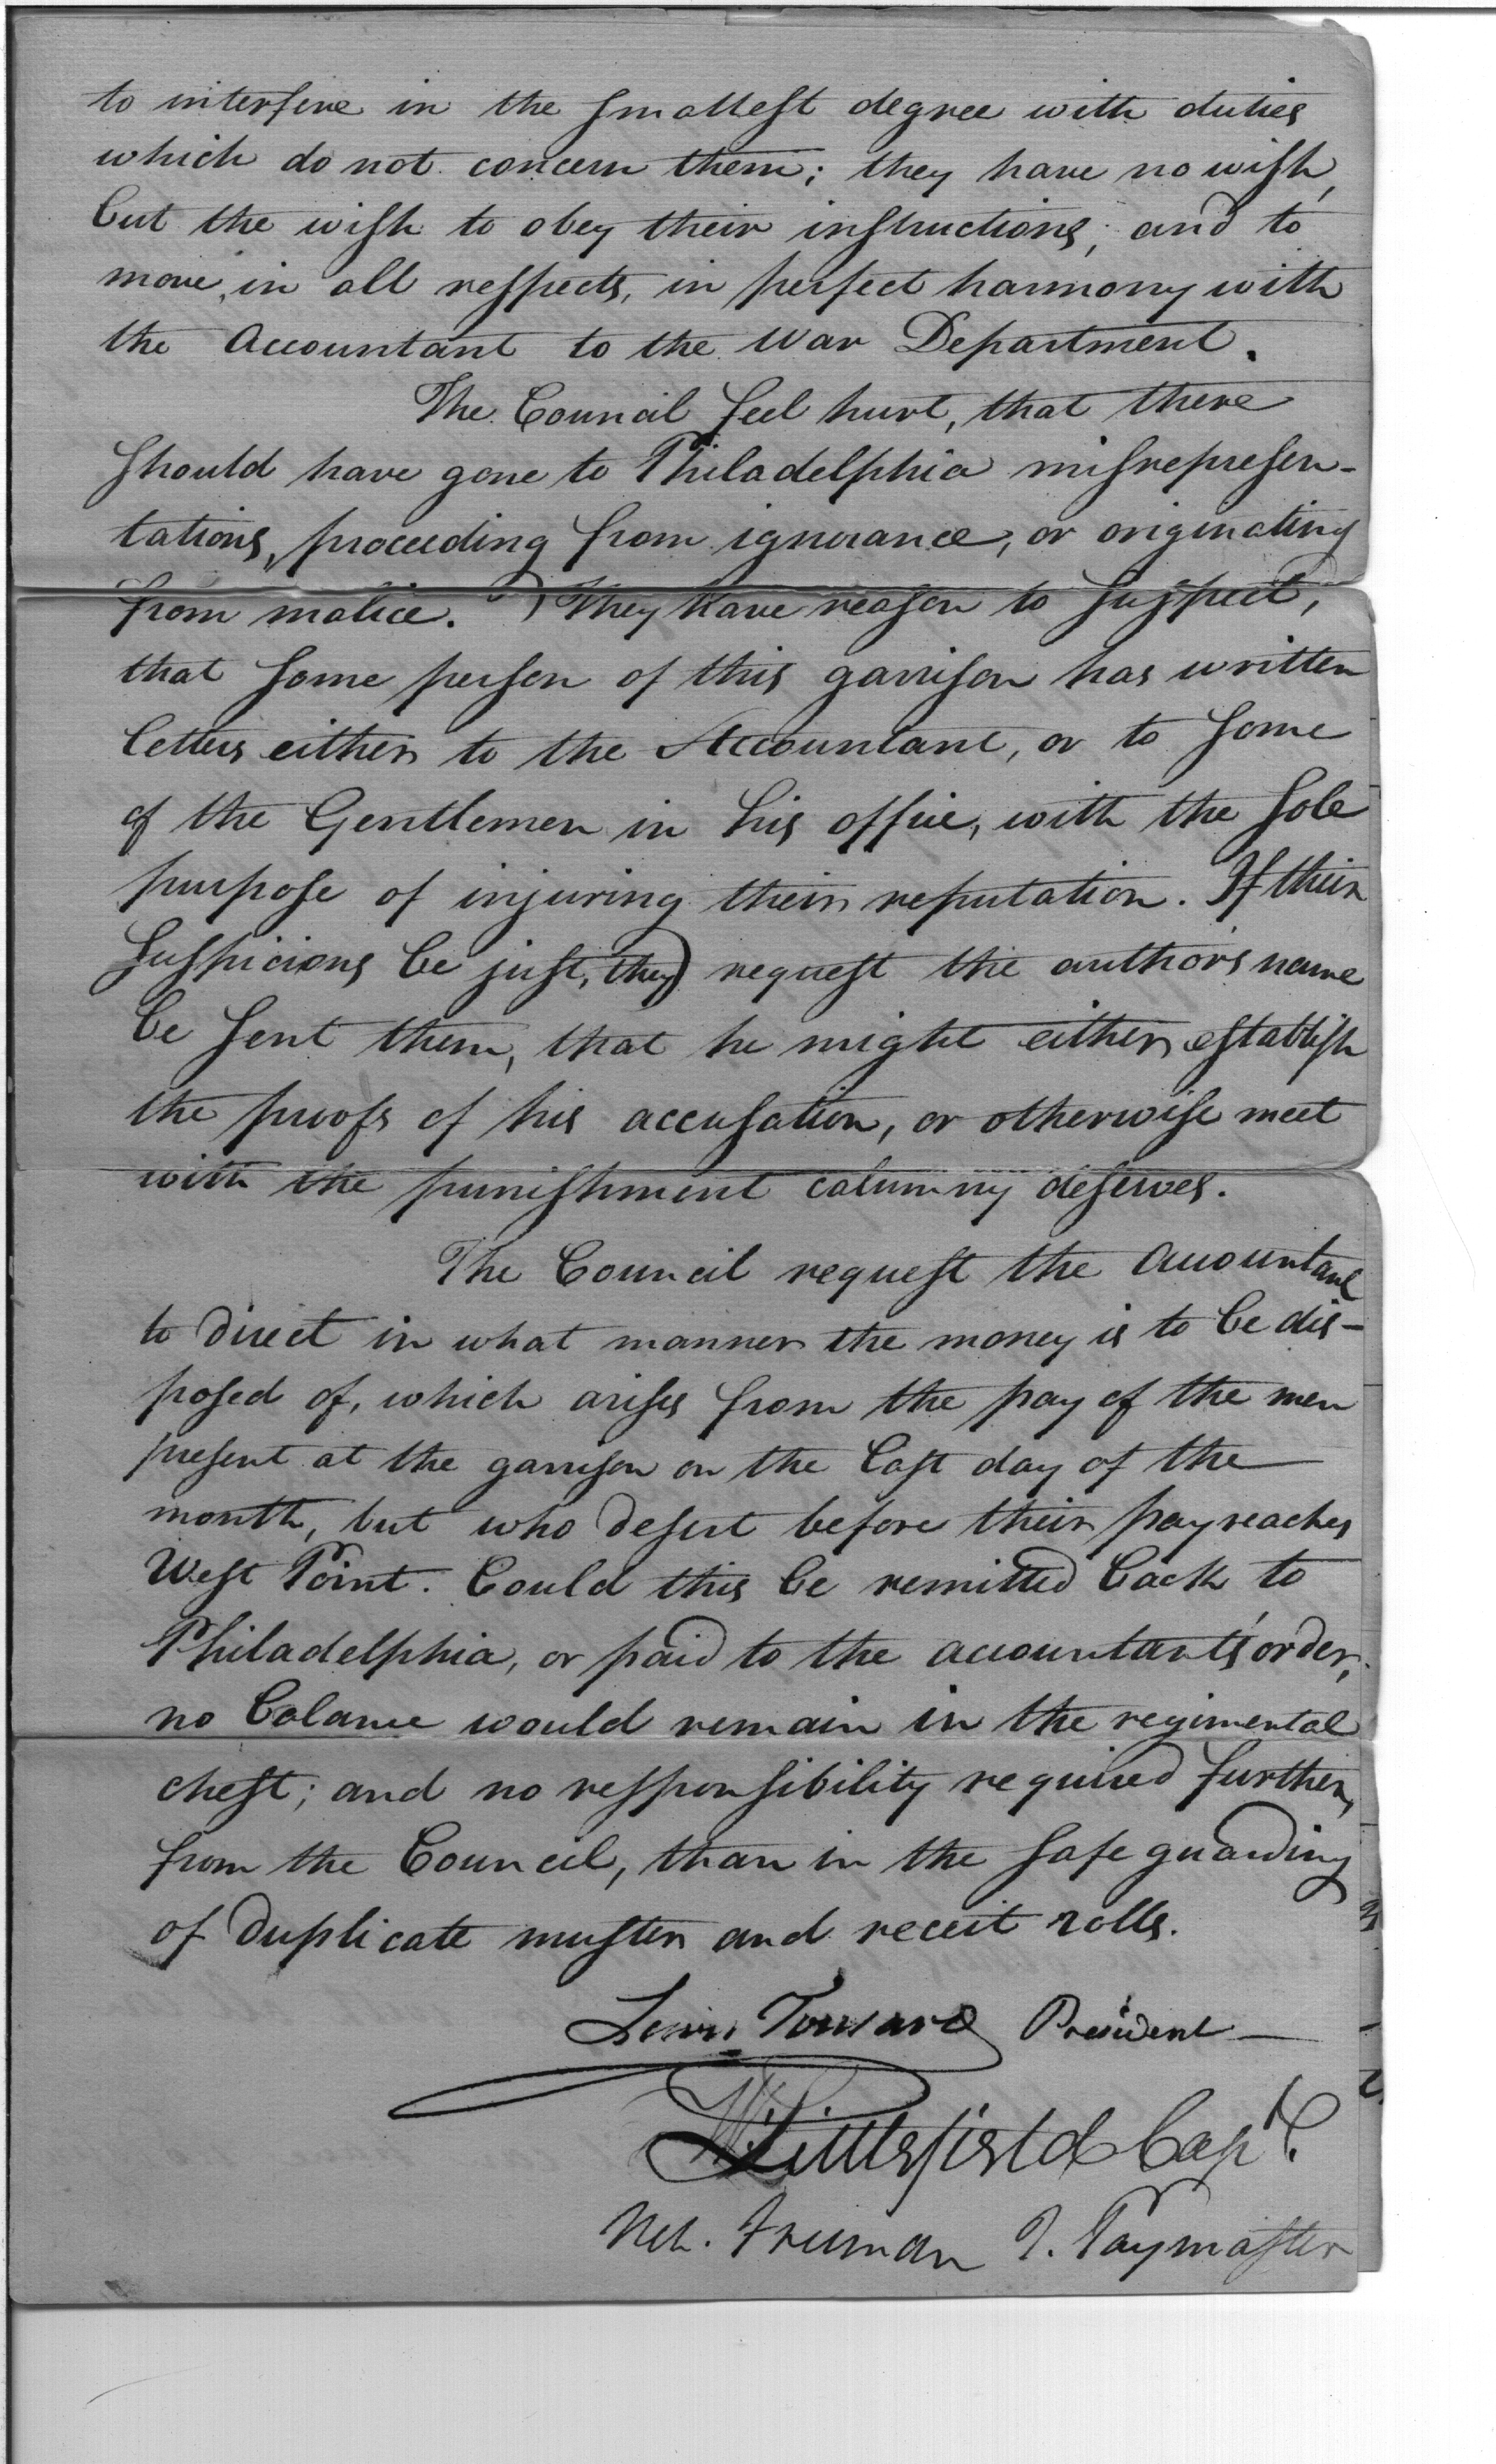 to interfere in the smallest degree with duties
which do not concern them; they have no wish,
but the wish to obey their instructions; and to
move, in all respects, in perfect harmony with
the Accountant to the War Department.
The Council feel hurt, that there
should have gone to Philadelphia misrepresen-
tations, proceeding from ignorance, or originating
from malice. They have reason to suspect,
that some person of this garrison has written
letters either to the Accountant, or to some
of the Gentlemen in his office, with the sole
purpose of injuring their reputation. If their
suspicions be just, they request the author's name
be sent them, that he might either establish
the proofs of his accusation, or otherwise meet
with the punishment calumny deserves.
The Council request the Accountant
to direct in what manner the money is to be dis-
posed of, which arises from the pay of the men
present at the garrison on the last day of the
month, but who desert before their pay reaches
West Point. Could this be remitted back to
Philadelphia, or paid to the accountant's order,
no balance would remain in the regimental
chest; and no responsibility required further,
from the Council, than in the safe guarding
of duplicate muster and receit rolls.
Lewis Tousard President
W Littlefield Capt.
Neh. Freeman P. Paymaster